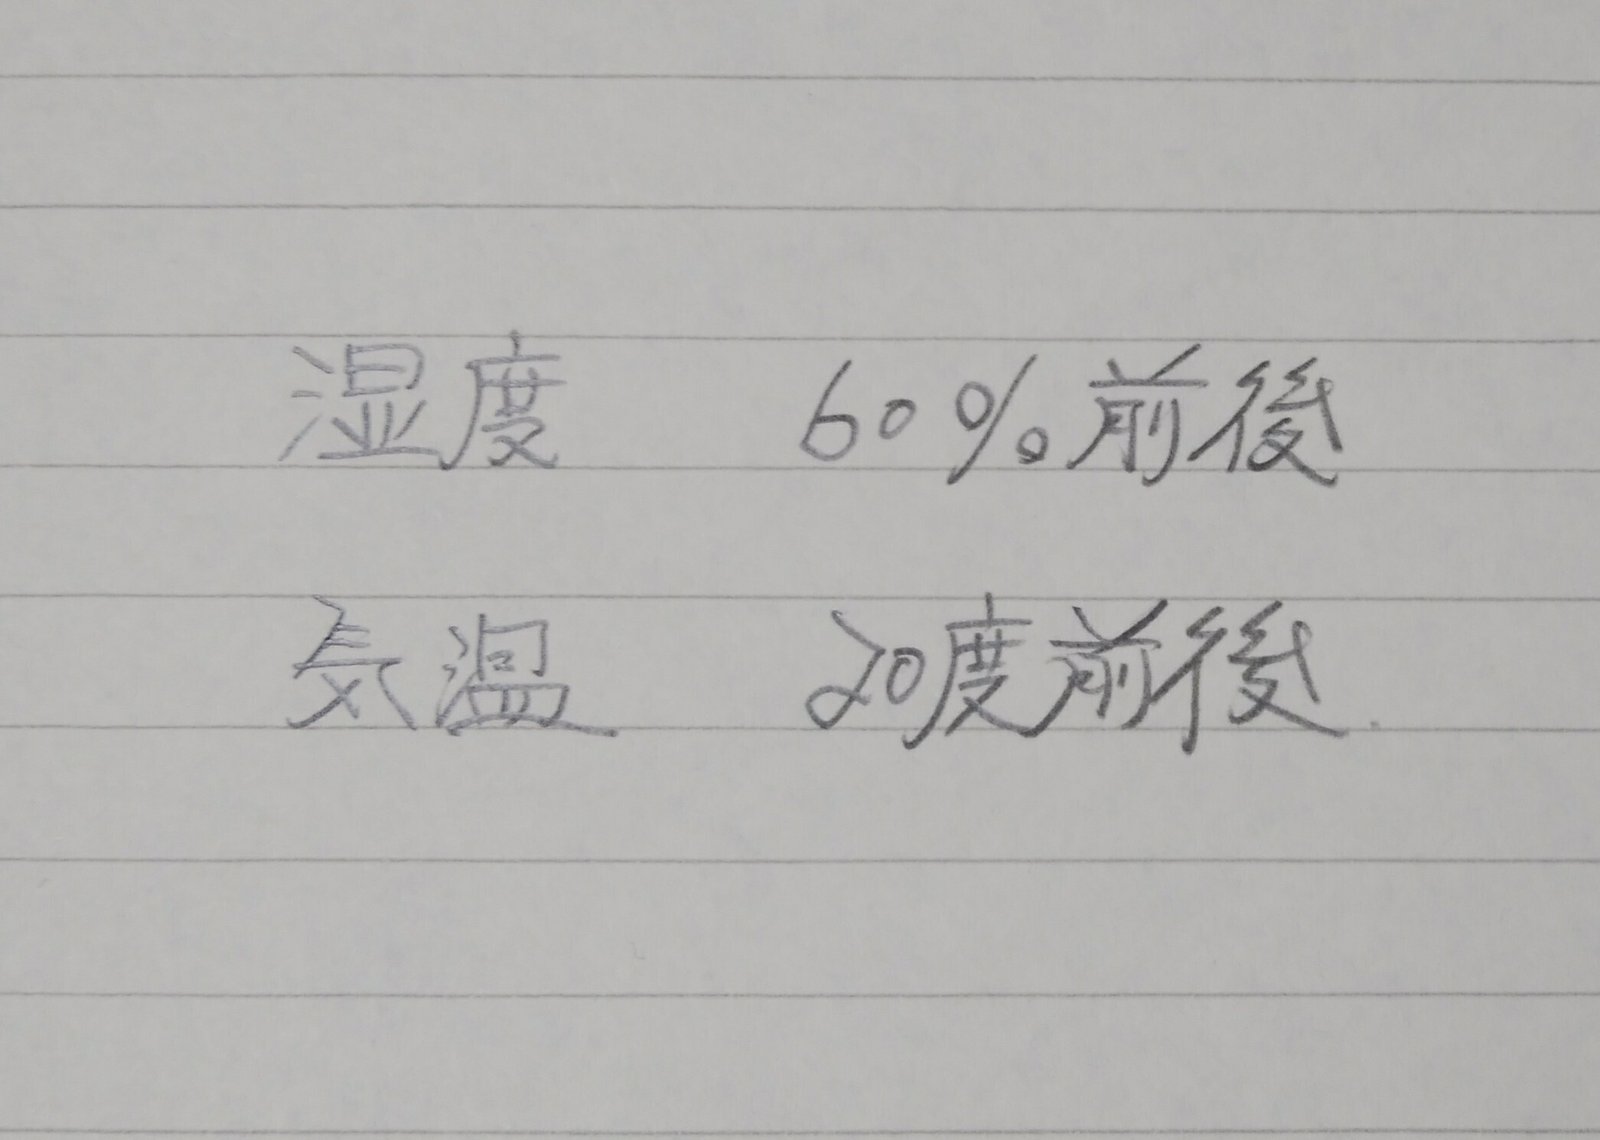 湿度 60%前後
気温 20度前後